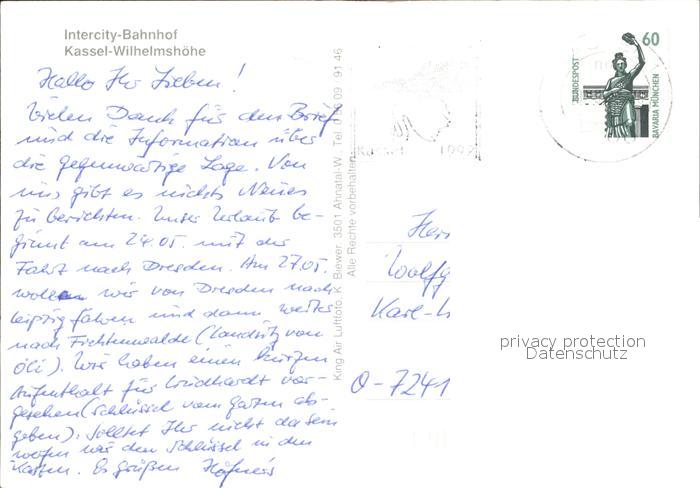 Intercity-Bahnhof
Kassel-Wilhelmshöhe
Hallo Ihr Lieben!
Vielen Dank für den Brief
und die Information über
die gegenwärtige Lage. Von
uns gibt es nichts Neues
zu berichten. Unser Urlaub be-
ginnt am 24.05. mit der
Fahrt nach Dresden. Am 27.05.
wollen wir von Dresden nach
Leipzig fahren und dann weiter
nach Fichtenwalde (Landsitz von
Oli). Wir haben einen kurzen
Aufenthalt für Lindhardt vor-
gesehen (Schlüssel vom Garten ab-
geben). Solltet Ihr nicht da sein
werfen wir den Schlüssel in den
Kasten. Es grüßen Höfner's
King Air Luftfoto, K. Biewer, 3501 Ahnatal-W. Tel. 09 91 46
Alle Rechte vorbehalten
Kassel 1992
60
BUNDESPOST
BAVARIA MÜNCHEN
Herr
Wolfg
Karl-
O-7241
privacy protection
Datenschutz